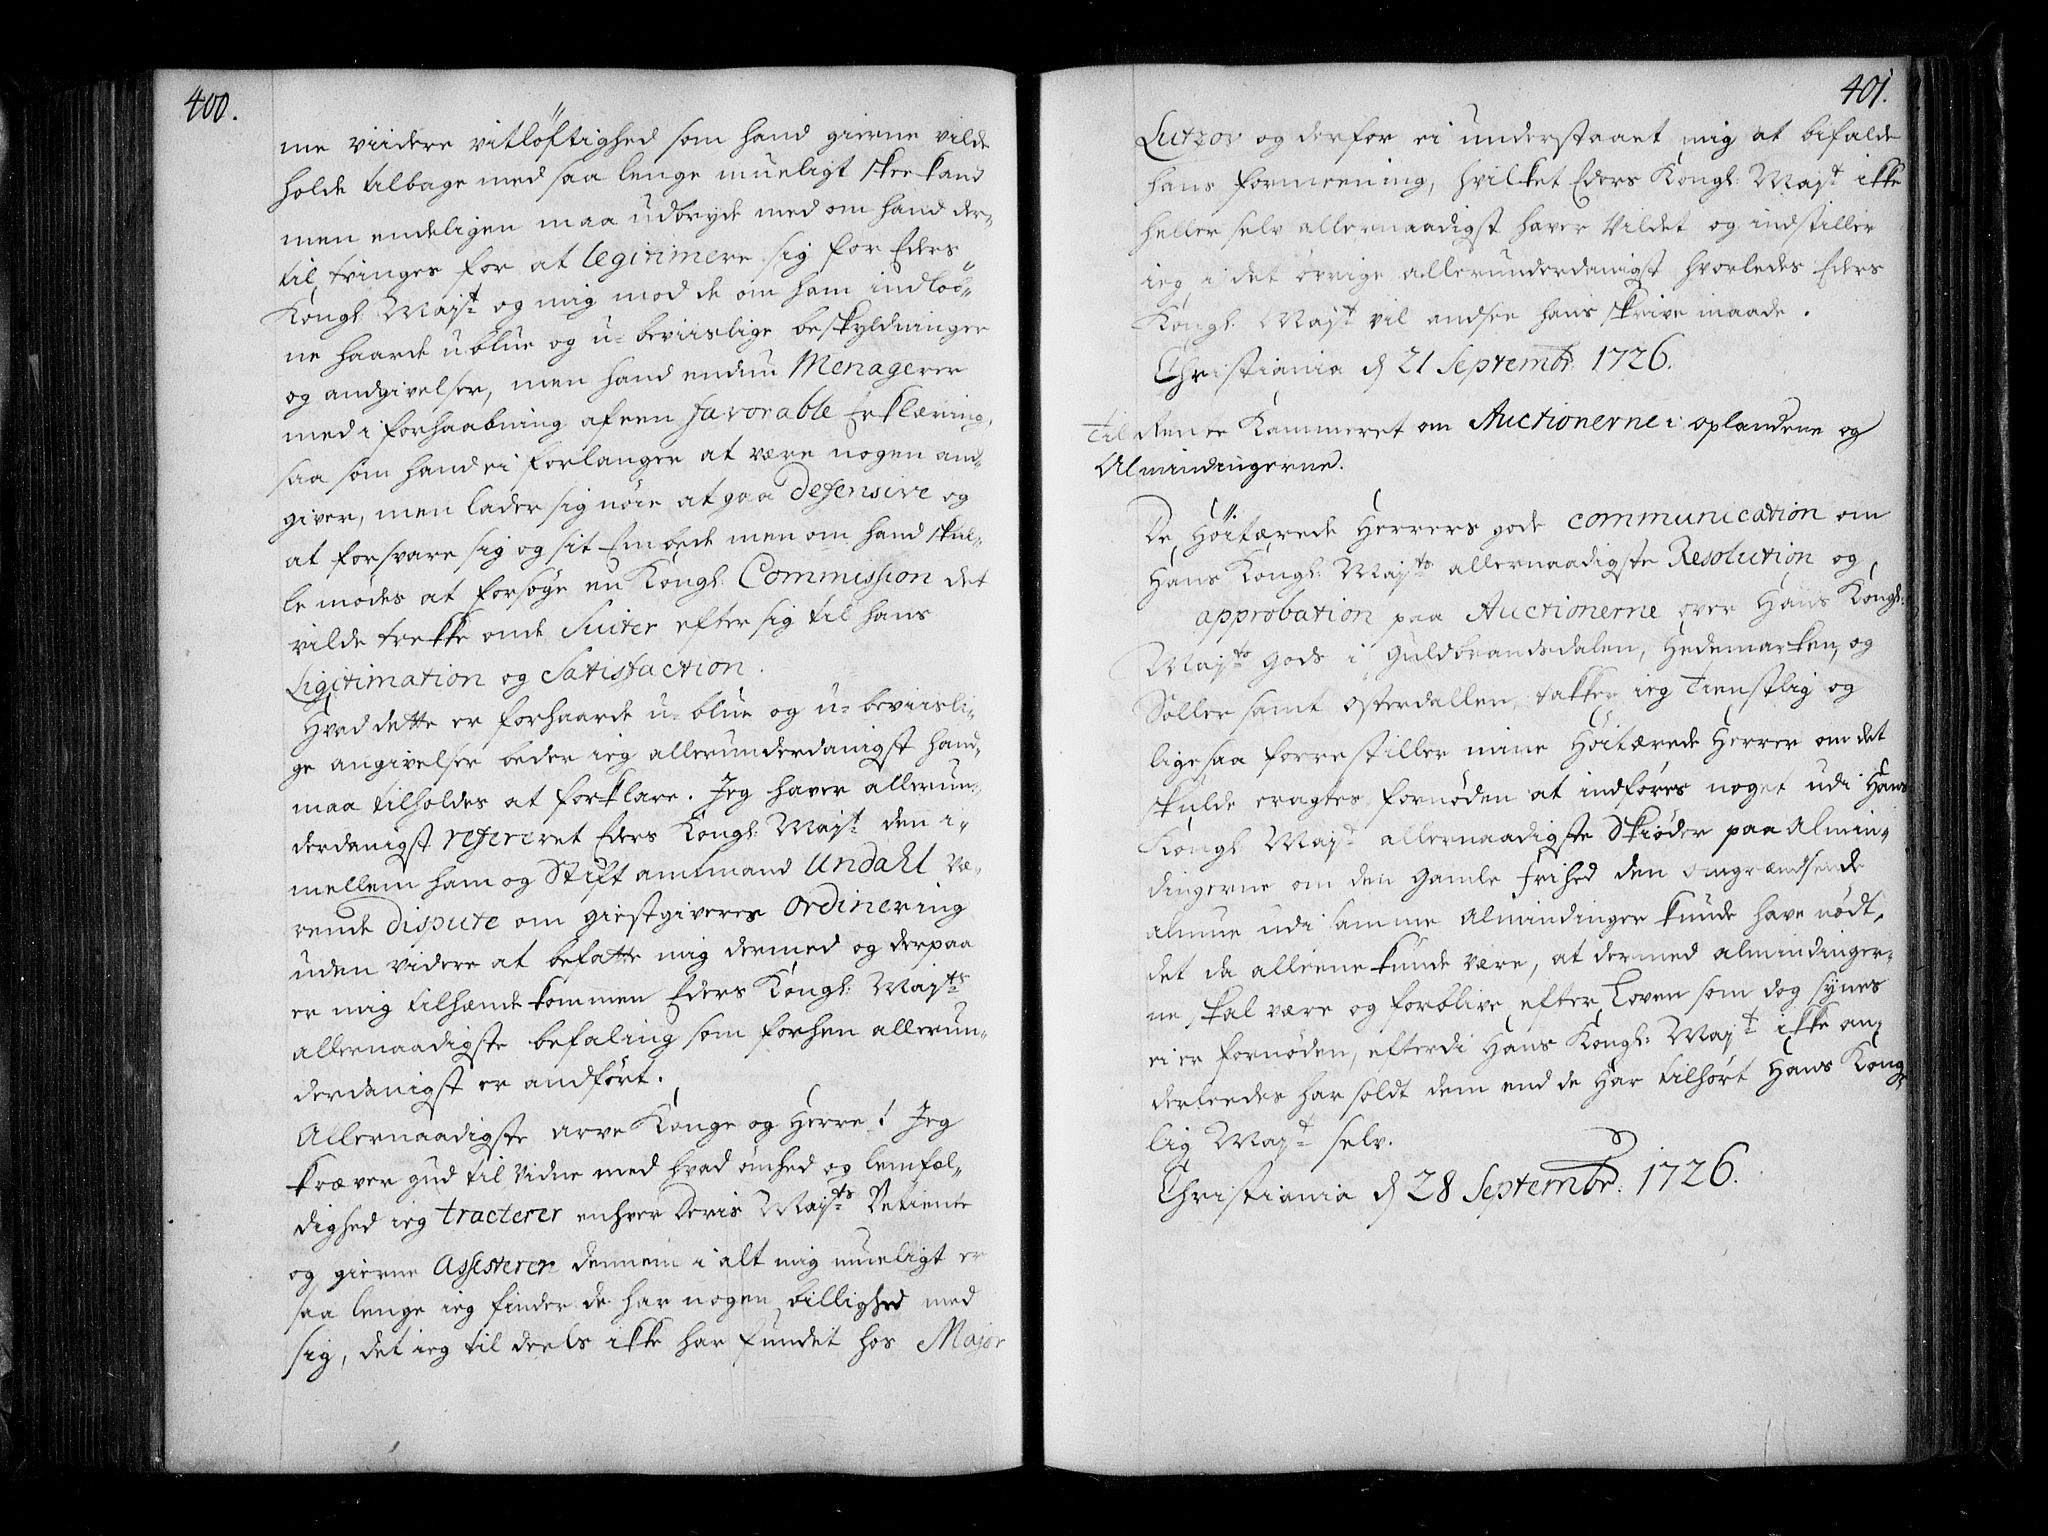 400.
me viidere vitløftighed som hand gierne vilde
holde tilbage med saa lenge mueligt skee kand
men endeligen maa udbryde med om hand der-
til tvinges for at legitimere sig for Eders
Kongl: Majt og mig mod de om ham indloø-
ne haarde u blue og u-beviislige beskyldninger
og andgivelser, men hand endnu Menagerer
med i forhaabning af een favorable Erklæring,
saa som hand ei forlanger at være nogen and-
giver, men lader sig nøie at gaa defensive og
at forsvare sig og sit Embede men om hand skul-
le mødes at forsøge en Kongl: Commission det
vilde trekke onde Suiter efter sig til hans
Ligitimation og Satisfaction.
Hvad dette er for haarde u-blue og u-beviisli-
ge angivelser beder ieg allerunderdanigst hand
maa tilholdes at forklare. Jeg haver allerun-
derdanigst refereret Eders Kongl: Majt den i-
mellem ham og Stift amtmand Undahl væ-
rende dispute om giestgiveres ordinering
uden videre at befatte mig dermed og derpaa
er mig tilhænde kommen Eders Kongl: Majts
allernaadigste befaling som forhen allerun-
derdanigst er andført.
Allernaadigste arve Konge og Herre! Jeg
kræver gud til Vidne med hvad ømhed og lemfæl-
dighed ieg tracterer enhver Deris Majts Betiente
og gierne assisterer dennem i alt mig mueligt er
saa lenge ieg finder de har nogen billighed med
sig, det ieg til deels ikke har fundet hos Major
401.
Lutzov og derfor ei understaaet mig at bifalde
hans formeening, hvilket Eders Kongl: Majt ikke
heller selv allernaadigst haver Vildet og indstiller
ieg i det øvrige allerunderdanigst hvorledes Eders
Kongl: Majt vil andsee hans skrive maade.
Christiania d 21 Septembr: 1726.
Til Rente Kammeret om Auctionerne i oplandene og
Almindingerne.
De Høitærede Herrers gode communication om
Hans Kongl: Majts allernaadigste Resolution og
approbation paa Auctionerne over Hans Kongl:
Majts Gods i Guldbrandsdalen, Hedemarken, og
Soller samt Osterdallen, takker ieg tienstlig og
ligesaa forrestiller mine Høitærede Herrer om det
skulde eragtes fornøden at indføres noget udi Hans
Kongl: Majt allernaadigste Skiøder paa Almin-
dingerne om den gamle frihed den omgrændsende
almue udi samme Almindinger kunde have nødt,
det da alleene kunde være, at dermed almindinger-
ne skal være og forblive efter Loven som dog synes
ei er fornøden, efterdi Hans Kongl: Majt ikke an-
derleedes har soldt dem end de har tilhørt Hans Kong-
lig Majt selv.
Christiania d 28 Septembr: 1726.